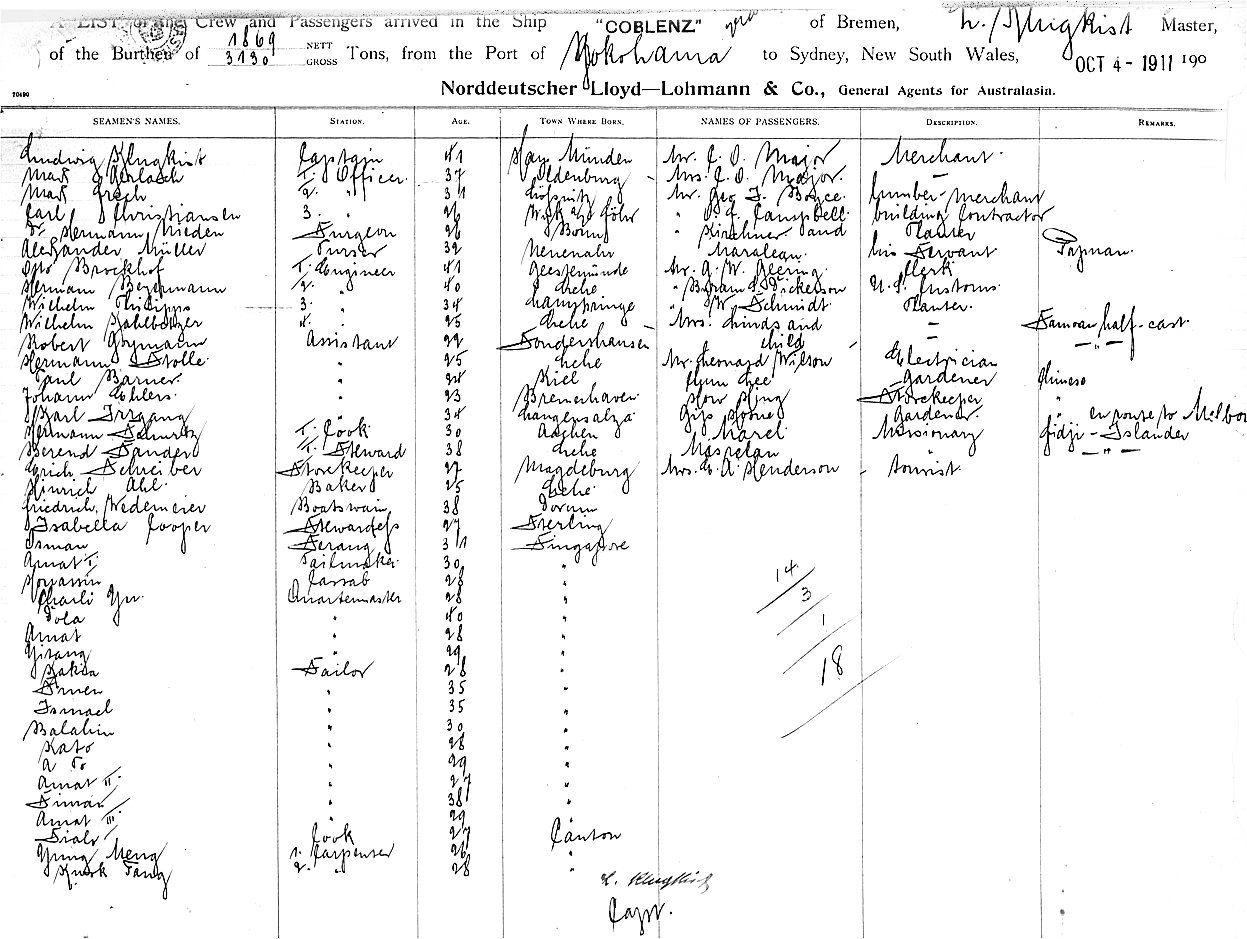 A LIST of the Crew and Passengers arrived in the Ship "COBLENZ" of Bremen, L. Klugkist Master,
of the Burthen of 1869 NETT 3130 GROSS Tons, from the Port of Yokohama to Sydney, New South Wales, OCT 4 - 1911 190
70490 Norddeutscher Lloyd—Lohmann & Co., General Agents for Australasia.
SEAMEN'S NAMES. STATION. AGE. TOWN WHERE BORN. NAMES OF PASSENGERS. DESCRIPTION. REMARKS.
Ludwig Klugkist Captain 41 Han. Münden Mr. C. O. Major Merchant.
Max Gerlach I. Officer 37 Oldenburg - Mrs. C. O. Major. -
Max Grech 2. " 31 Mr. Geo J. Boyce. Lumber-Merchant
Carl Christiansen 3. " 26 Wyk a/ Föhr " Campbell building Contractor
Dr Hermann Nieden Surgeon 26 Bonn " Kirchner and Planter
Alexander Müller Purser 32 Neuenahr Maralean his Servant Papuan.
Otto Brockhof I. Engineer 41 Geestemünde Mr. G. W. Geering. Clerk
Hermann 2. " 40 Lehe " Dickerson U.S. Customs
Wilhelm Philipps 3. " 34 Lamspringe " W. Schmidt Planter.
Wilhelm 4. " 25 Lehe - Mrs. Hinds and - Samoan half-cast
Robert Assistant 22 Sondershausen child - - " -
Hermann Stolle " 25 Lehe Mr. Leonard Wilson Electrician
Paul Barner. " 24 Kiel Lee Gardener Chinese
Johann Ehlers. " 23 Bremerhaven Storekeeper "
Karl Irgang " 34 Langensalza Gardener. " en route to
Hermann I. Cook 30 Aachen Marel Missionary Fidji-Islander
Berend Sander I. Steward 38 Lehe - " -
Erich Schreiber Storekeeper 27 Magdeburg Mrs. E. A. Henderson - tourist.
Hinrich Ahl. Baker 25 Lehe
Friedrich Wedemeier Boatswain 38 Dorum
Isabella Cooper Stewardess 27 Sterling
Osman Serang 31 Singapore
Amat I Sailmaker. 30 "
Cassab 28 " 14
Charli Quartermaster 28 " 3
Dola " 40 " 1
Amat " 28 "
" 29 " 18
Sailor 28 "
" 35 "
Ismael " 35 "
Balahin " 30 "
Kato " 28 "
" 29 "
Amat II " 27 "
Siman " 38 "
Amat III " 29 "
Cook 27 Canton
Yung Meng 1. Carpenter 26 "
Kwok Fang 2. " 28 "
L. Klugkist
Capt.